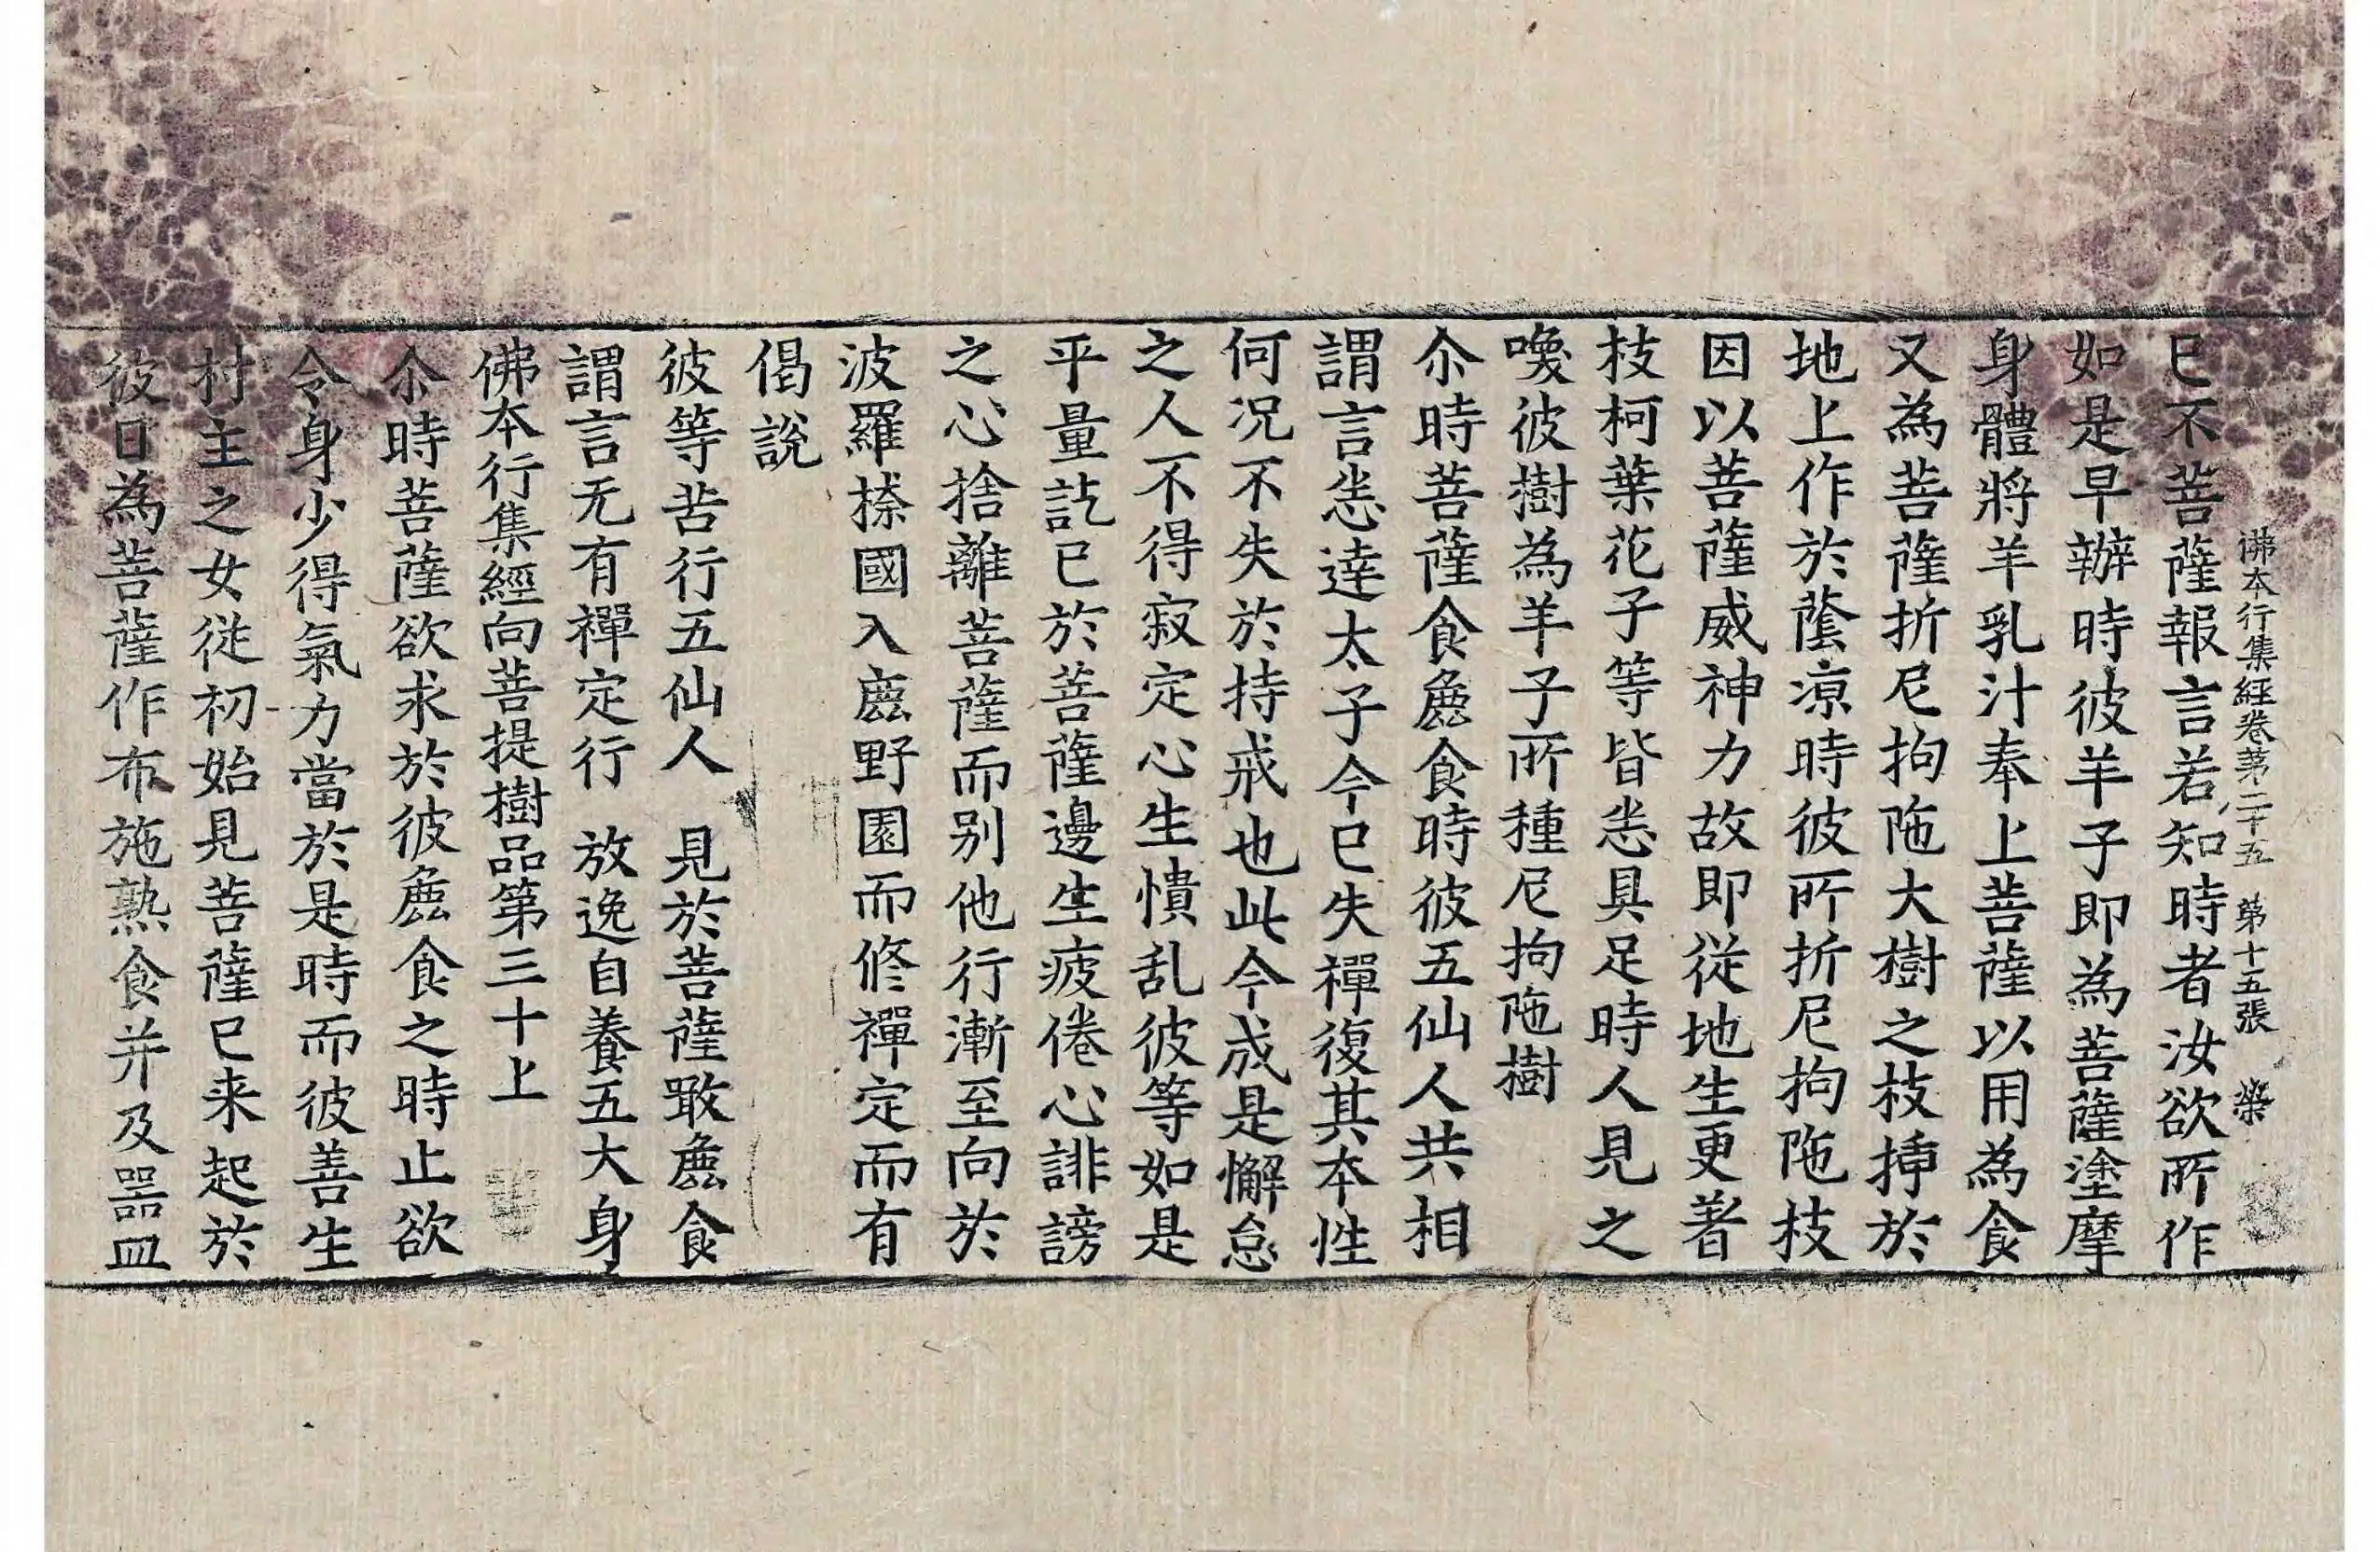 佛本行集經卷苐二十五 苐十五張 染
已不菩薩報言若知時者汝欲所作
如是早辦時彼羊子即為菩薩塗摩
身體將羊乳汁奉上菩薩以用為食
又為菩薩折尼拘陁大樹之枝揷於
地上作於蔭凉時彼所折尼拘陁枝
因以菩薩威神力故即従地生更著
枝柯葉花子等皆悉具足時人見之
喚彼樹為羊子所種尼拘陁樹
尒時菩薩食麁食時彼五仙人共相
謂言悉達太子今已失禪復其本性
何况不失於持戒也此今成是懈怠
之人不得寂定心生憒乱彼等如是
平量訖已於菩薩邊生疲倦心誹謗
之心捨離菩薩而别他行漸至向於
波羅㮈國入鹿野園而修禪定而有
偈説
彼等苦行五仙人　見於菩薩噉麁食
謂言无有禪定行　放逸自養五大身
佛本行集經向菩提樹品第三十上
尒時菩薩欲求於彼麁食之時止欲
令身少得氣力當於是時而彼善生
村主之女従初始見菩薩已来起於
彼日為菩薩作布施熟食并及器皿